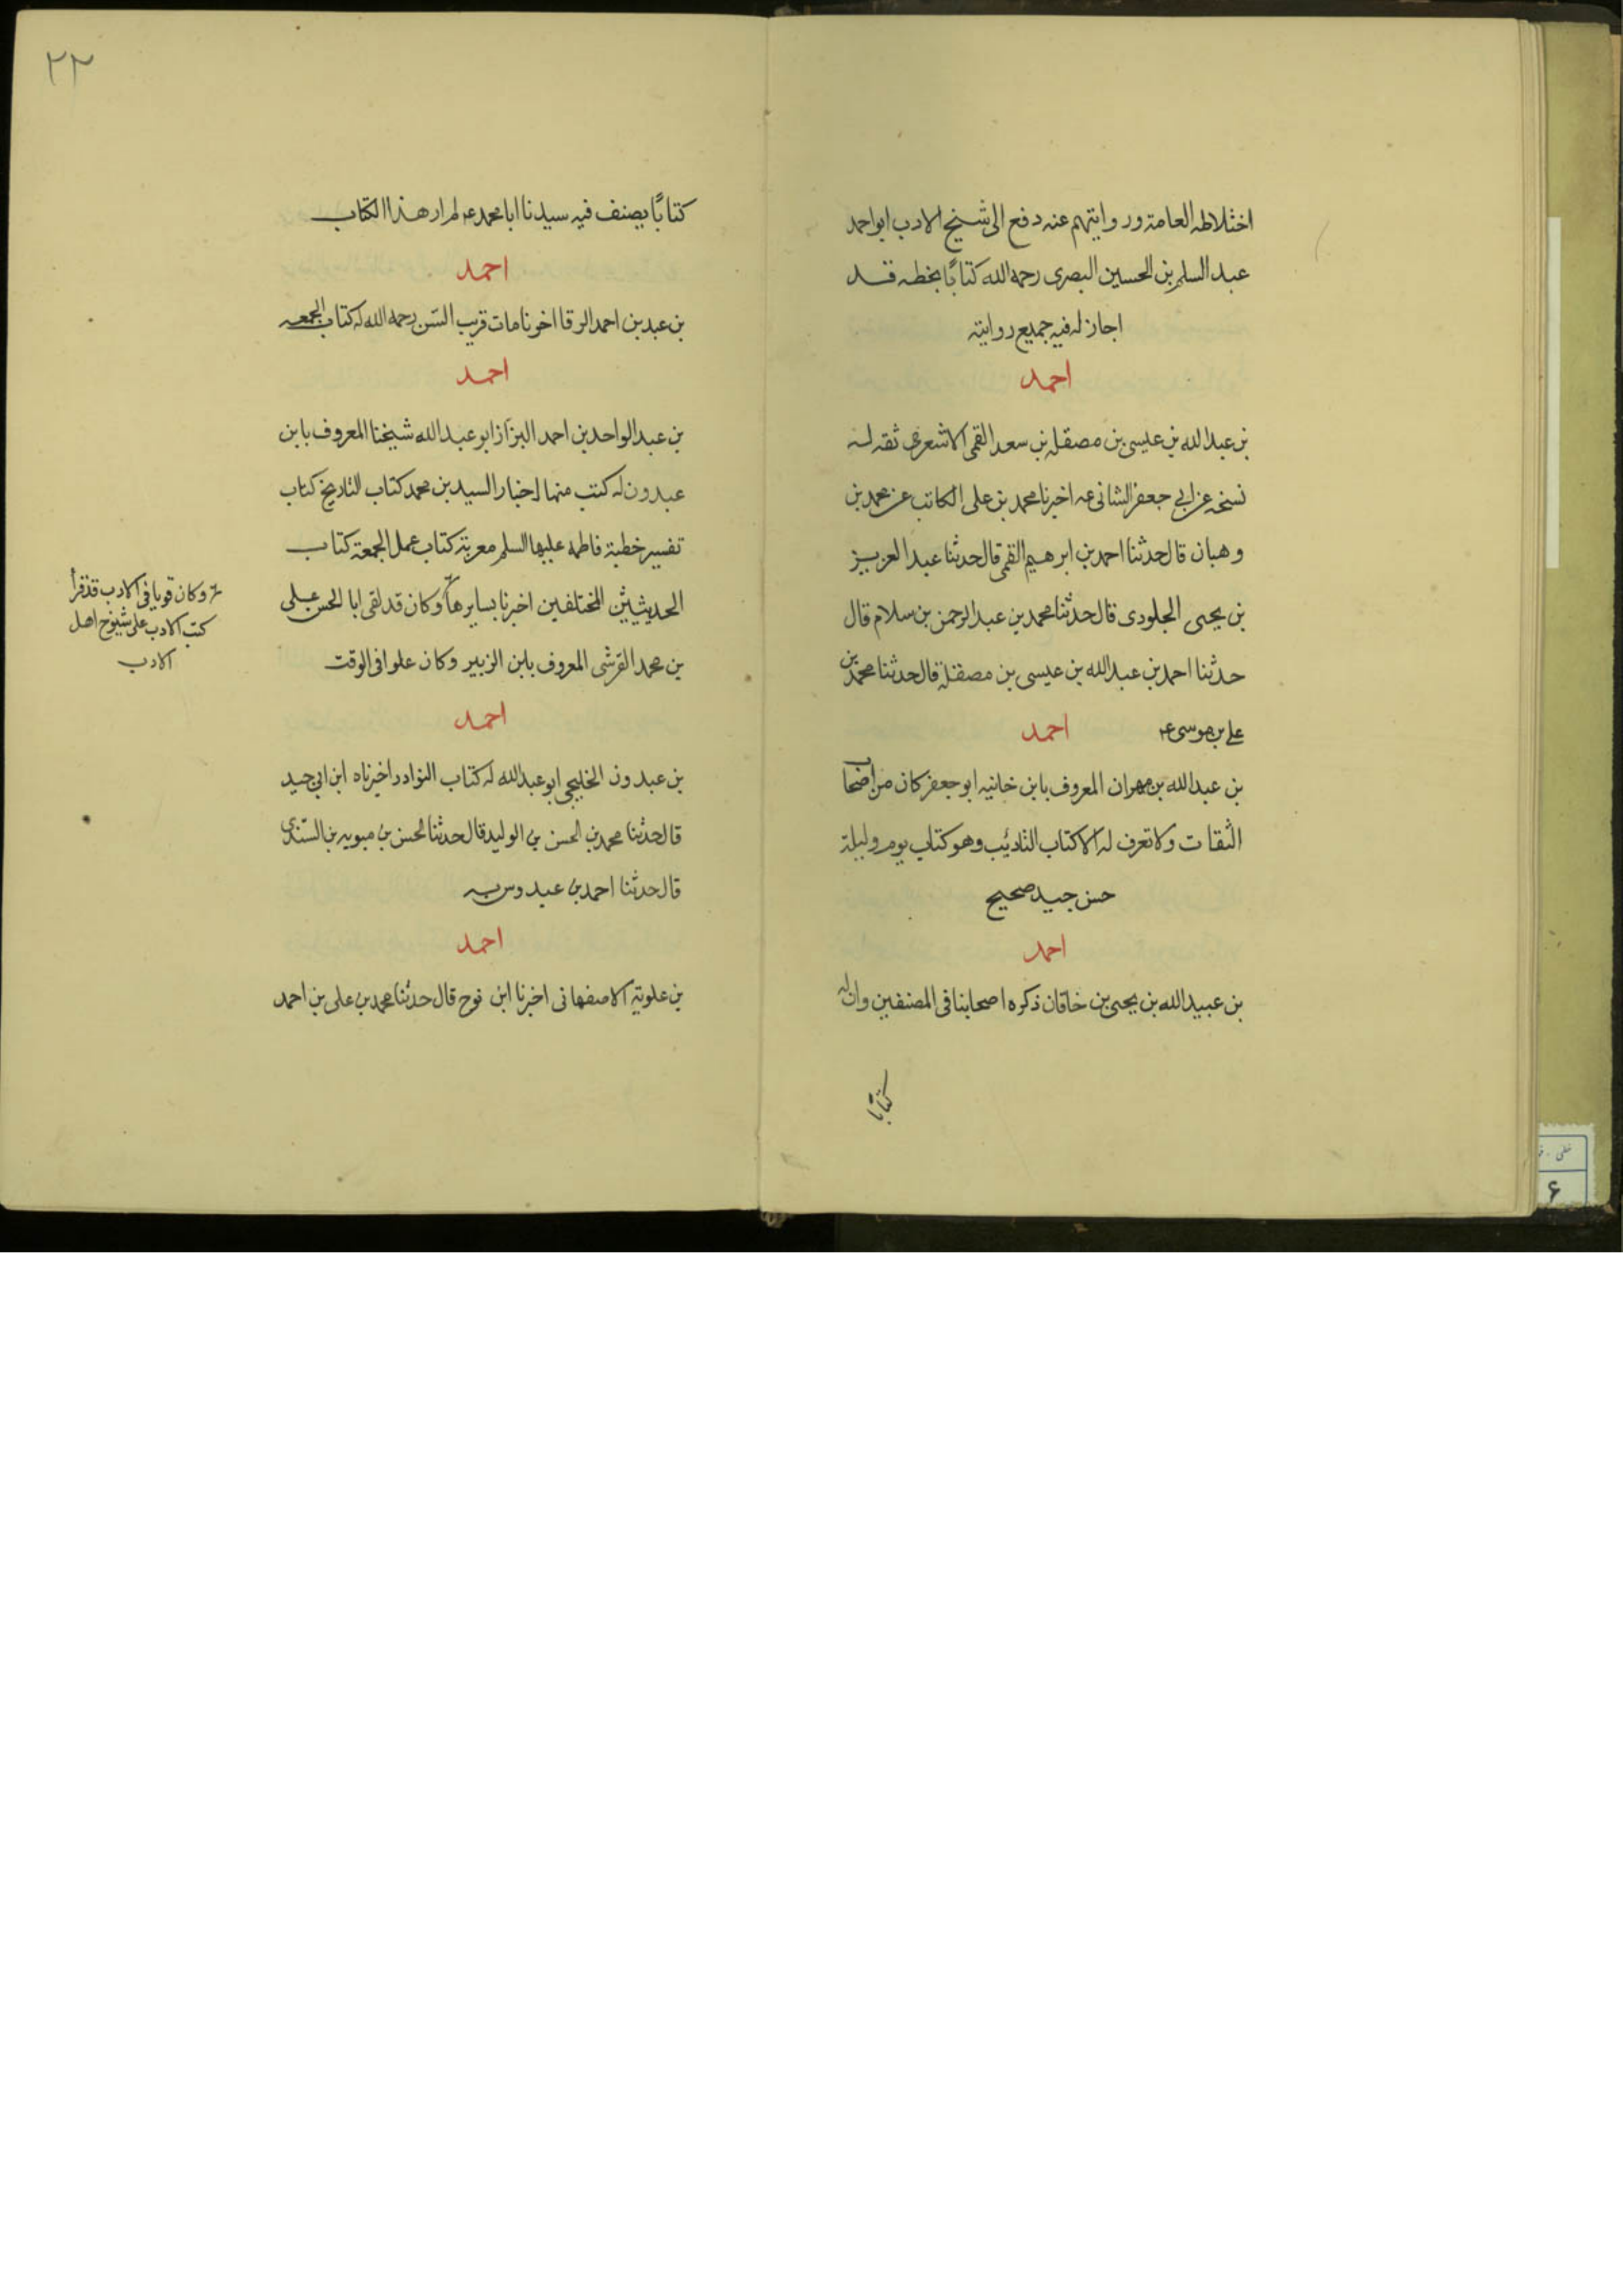 اختلاطه العامة وروايتهم عنه دفع الى شيخ الادب ابو احمد
عبد السلم بن الحسين البصرى رحمه الله كتابًا بخطه قد
اجاز له فيه جميع روايته
احمد
بن عبد الله بن عليسى بن مصقله بن سعد القمى الاشعرى ثقه له
نسخه عن ابى جعفر الثانى عه اخبرنا محمد بن على الكاتب عن محمد بن
وهبان قال حدثنا احمد بن ابرهيم القمى قال حدثنا عبد العزيز
بن يحيى الجلودى قال حدثنا محمد بن عبد الرحمن بن سلام قال
حدثنا احمد بن عبد الله بن عيسى بن مصقلة قال حدثنا محمد بن
على بن موسى عه احمد
بن عبد الله بن مهران المعروف بابن خانيه ابو جعفر كان من اصحابنا
الثقات ولا تعرف له الا كتاب التاديب وهو كتاب يوم وليلة
حسن جيد صحيح
احمد
بن عبيد الله بن يحيى بن خاقان ذكره اصحابنا فى المصنفين وان له
كتابًا
٢٢
كتابًا يصنف فيه سيدنا ابا محمد عه لم ار هذا الكتاب
احمد
بن عبد بن احمد الرفا اخونا مات قريب السن رحمه الله له كتاب الجمعه
احمد
بن عبد الواحد بن احمد البزاز ابو عبد الله شيخنا المعروف بابن
عبدون له كتب منها اخبار السيد بن محمد كتاب التاريخ كتاب
تفسير خطبة فاطمه عليها السلم معربة كتاب عمل الجمعة كتاب
الحديثيثين المختلفين اخبرنا بسايرها وكان قد لقى ابا الحسن على
بن محمد القرشى المعروف بابن الزبير وكان علوا فى الوقت
وكان قويا فى الادب قد قرأ
كتب الادب على شيوخ اهل
الادب
احمد
بن عبدون الخليجى ابو عبد الله له كتاب النوادر اخبرناه ابن ابى جيد
قال حدثنا محمد بن الحسن بن الوليد قال حدثنا الحسن بن مبويه بن السندى
قال حدثنا احمد بن عبدوس به
احمد
بن علوية الاصفهانى اخبرنا ابن نوح قال حدثنا محمد بن على بن احمد